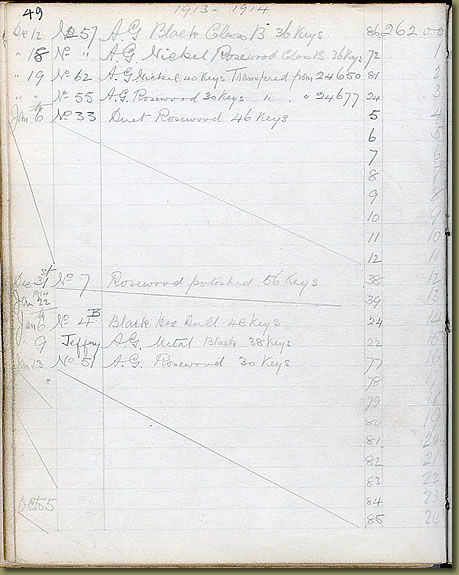 49 1913 - 1914
De 12 No 57 A.G. Black Class B 36 Keys 86 26200
" 18 No " A.G. Nickel Rosewood Class B 36 Keys 72 1
" 19 No 62 A.G. Nickel 40 Keys Transfered from 24650 81 2
" " No 55 A.G. Rosewood 30 Keys " " 24677 24 3
Jan 6th No 33 Duet Rosewood 46 Keys 5 4
6 5
7 6
8 7
9 8
10 9
11 10
12 11
Dec 31st No 7 Rosewood polished 56 Keys 38 12
Jan 22 39 13
Jan 6th No 4B Black Box Duet 48 Keys 24 14
9 Jeffory A.G. Metal Black 38 Keys 22 15
Jan 13 No 51 A.G. Rosewood 30 Keys 77 16
" 78 17
79 18
80 19
81 20
82 21
83 22
Oct 5 84 23
85 24